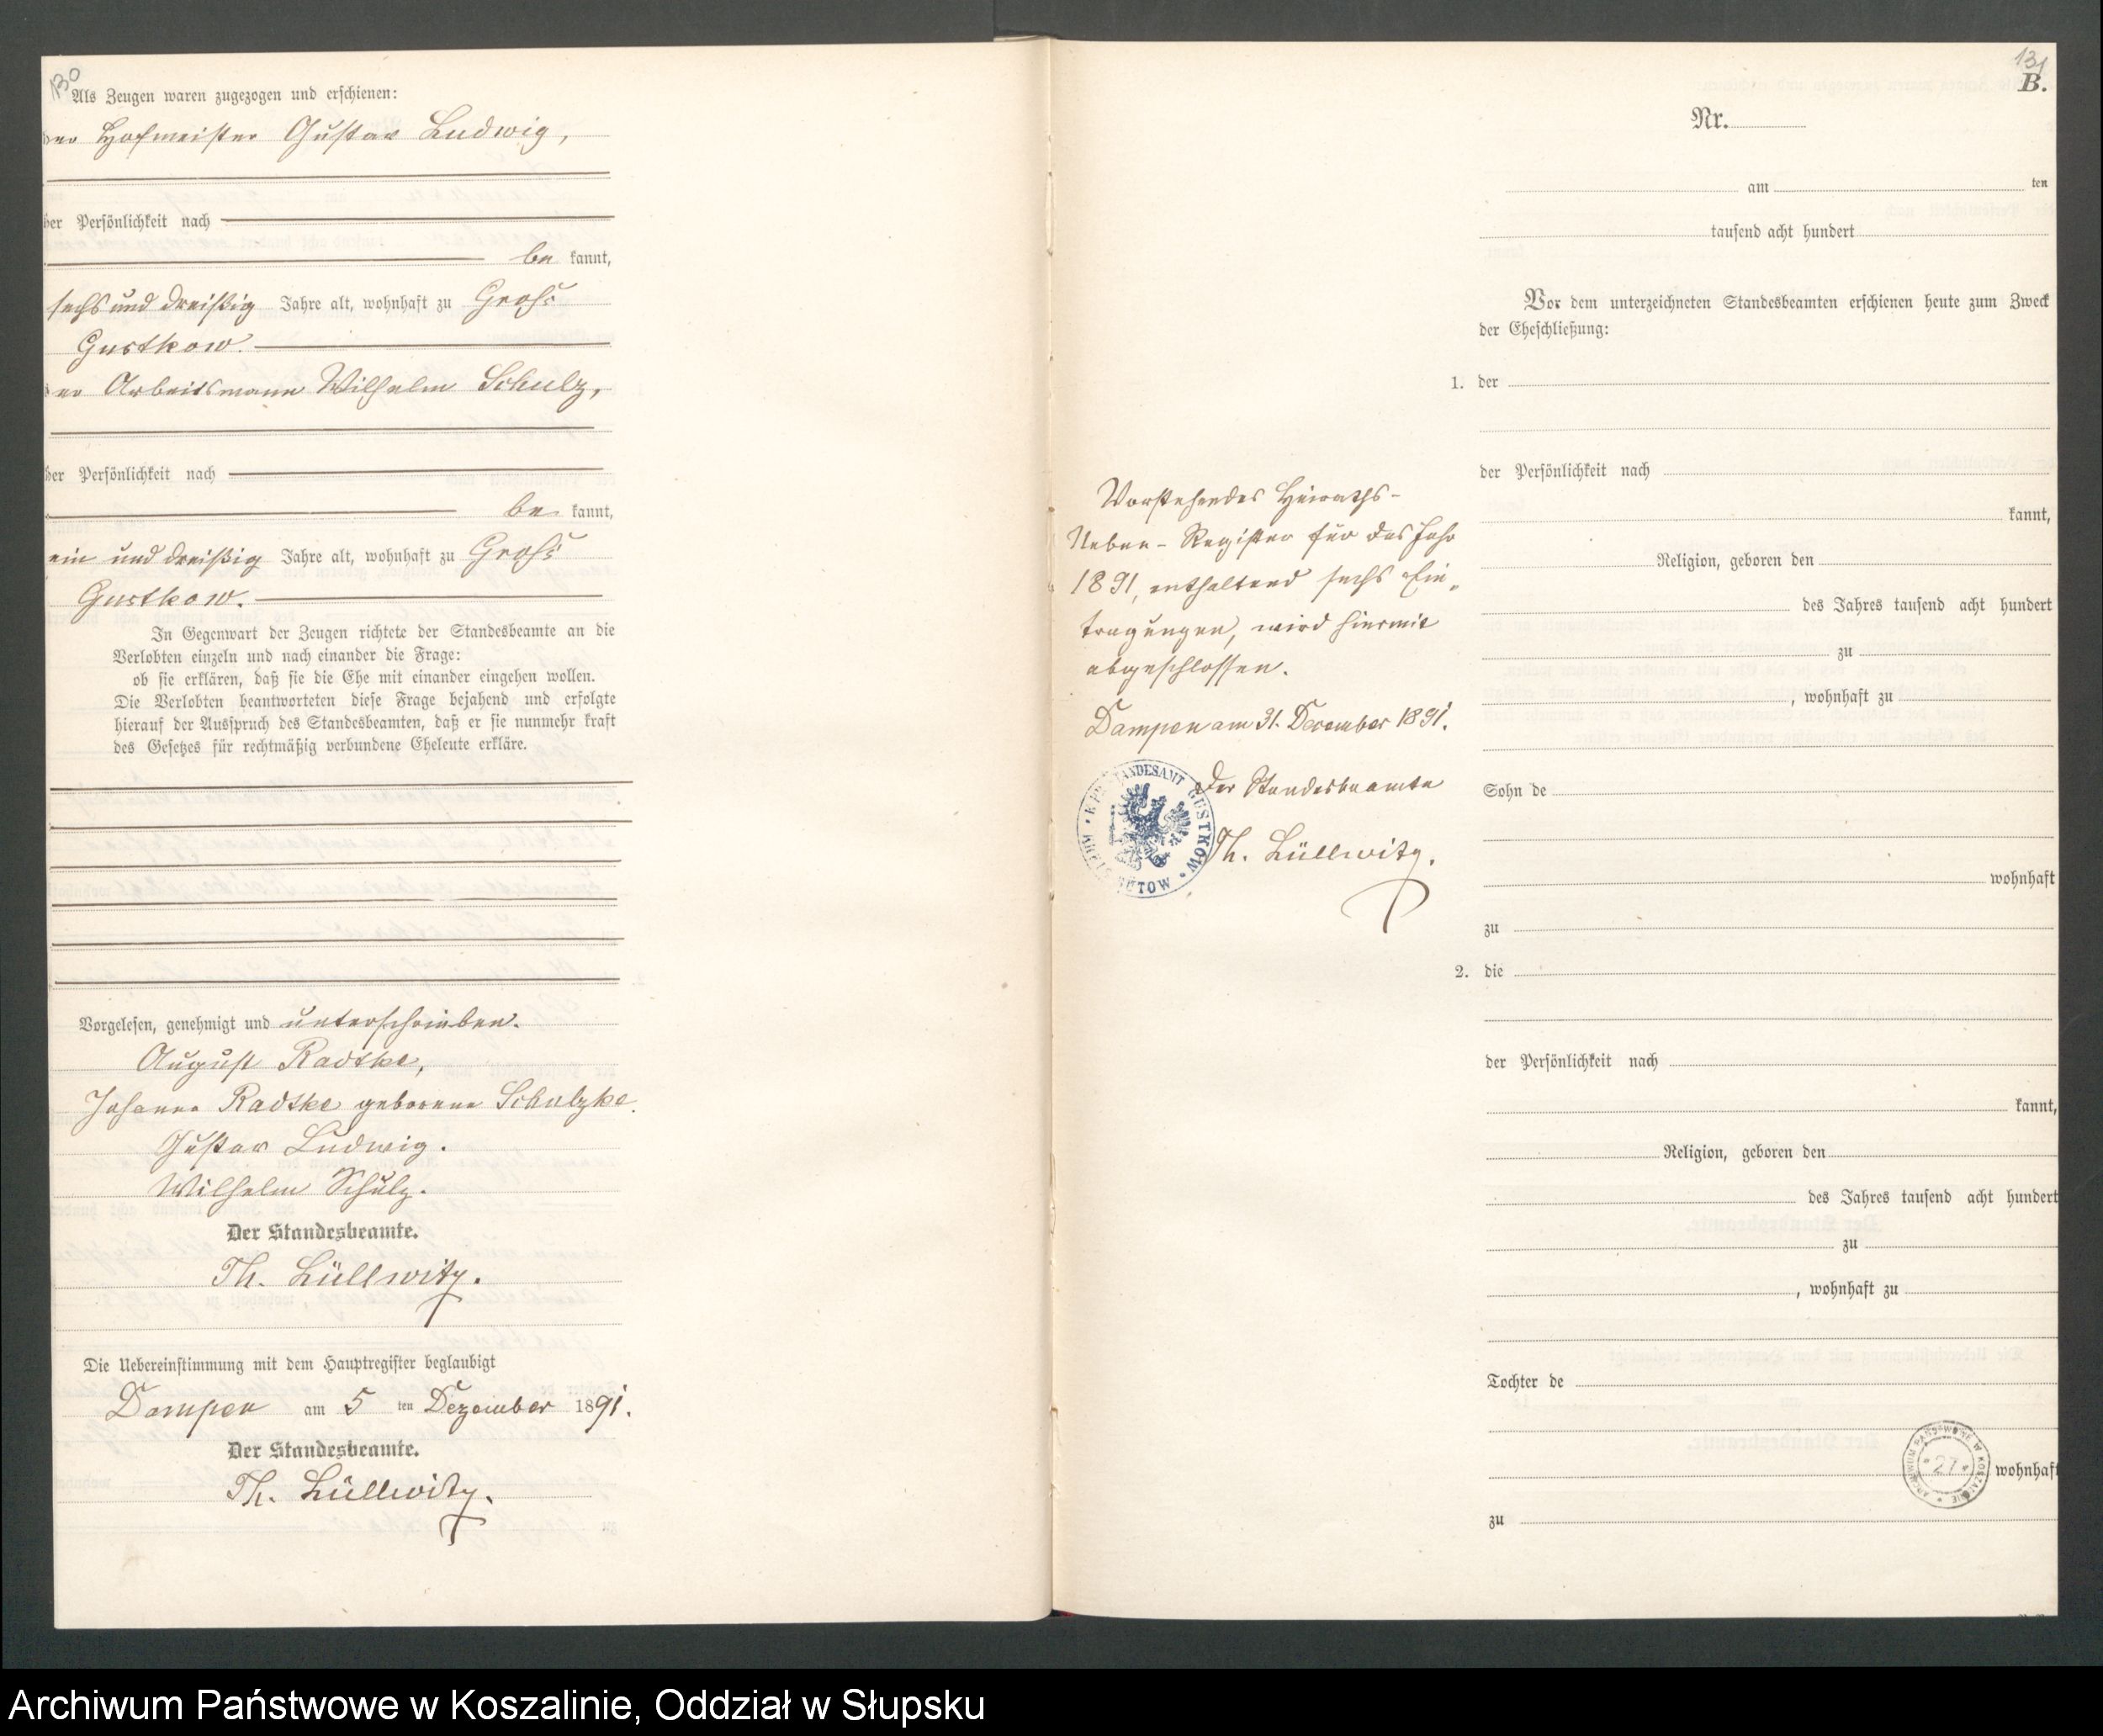 130
Als Zeugen waren zugezogen und erschienen:
der Hofmeister Gustav Ludwig,
der Persönlichkeit nach
be kannt,
sechs und dreißig Jahre alt, wohnhaft zu Groß
Gustkow.
der Arbeitsmann Wilhelm Schulz,
der Persönlichkeit nach
be kannt,
ein und dreißig Jahre alt, wohnhaft zu Groß
Gustkow.
In Gegenwart der Zeugen richtete der Standesbeamte an die
Verlobten einzeln und nach einander die Frage:
ob sie erklären, daß sie die Ehe mit einander eingehen wollen.
Die Verlobten beantworteten diese Frage bejahend und erfolgte
hierauf der Ausspruch des Standesbeamten, daß er sie nunmehr kraft
des Gesetzes für rechtmäßig verbundene Eheleute erkläre.
Vorgelesen, genehmigt und unterschrieben.
August Radtke,
Johanna Radtke geborene Schulzke.
Gustav Ludwig.
Wilhelm Schulz.
Der Standesbeamte.
Th. Lüllwitz.
Die Uebereinstimmung mit dem Hauptregister beglaubigt
Dampen am 5 ten Dezember 1891.
Der Standesbeamte.
Th. Lüllwitz.
Vorstehendes Heiraths-
Neben-Register für das Jahr
1891, enthaltend sechs Ein-
tragungen, wird hiermit
abgeschlossen.
Dampen am 31. December 1891.
Der Standesbeamte
Th. Lüllwitz.
STANDESAMT GUSTKOW * BÜTOW
131
B.
Nr.
am ten
tausend acht hundert
Vor dem unterzeichneten Standesbeamten erschienen heute zum Zweck
der Eheschließung:
1. der
der Persönlichkeit nach
kannt,
Religion, geboren den
des Jahres tausend acht hundert
zu
, wohnhaft zu
Sohn de
wohnhaft
zu
2. die
der Persönlichkeit nach
kannt,
Religion, geboren den
des Jahres tausend acht hundert
zu
, wohnhaft zu
Tochter de
wohnhaft
zu
ARCHIWUM PAŃSTWOWE W KOSZALINIE * 27 *
Archiwum Państwowe w Koszalinie, Oddział w Słupsku